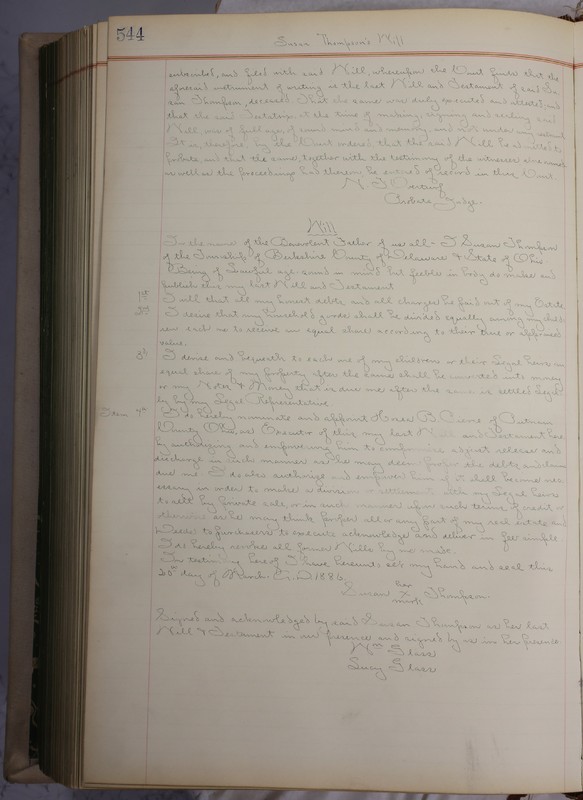 544
Susan Thompson's Will
and filed with said Will, whereupon the Court finds that the
aforesaid instrument of writing is the last Will and Testament of said Su-
san Thompson, deceased. That the same was duly executed and attested, and
that the said Testatrix at the time of making, signing and sealing said
Will, was of full age, of sound mind and memory, and not under any restraint
It is, therefore, by the Court ordered that the said Will be admitted to
Probate and that the same, together with the testimony of the witnesses
as well as the proceedings had therein be entered of record in this Court.
Probate Judge.
Will
In the name of the Benevolent Father of us all - I Susan Thompson
of the Township of Berkshire County of Delaware & State of Ohio
Being of lawful age sound in mind but feeble in body do make and
publish this my last Will and Testament
I will that all my honest debts and all charges be paid out of my Estate
I desire that my household goods shall be divided equally among my child-
ren each one to receive an equal share according to their true or appraised
value.
3d I devise and bequeath to each one of my children or their Legal heirs an
equal share of my property after the same shall be converted into money
or any Notes & Money that is due me after the same is settled Legal-
ly by my Legal Representative
Item 4th I do hereby nominate and appoint B. Carne of Putnam
County Ohio, as Executor of this my last Will and Testament here-
by authorizing and empowering him to compromise adjust release and
discharge in such manner as he may deem proper the debts and claims
due me. I do also authorize and empower him if it shall become nec-
essary in order to make a division or settlement with my Legal heirs
to sell by private sale, or in such manner upon such terms of credit or
otherwise as he may think proper all or any part of my real estate and
Deeds to purchasers to execute acknowledge and deliver in fee simple
I do hereby revoke all former Wills by me made.
In testimony hereof I have hereunto set my hand and seal this
20th day of March A.D. 1886.
her
Susan X Thompson.
mark
Signed and acknowledged by said Susan Thompson as her last
Will & Testament in our presence and signed by us in her presence
Wm Slack
Lucy Slack